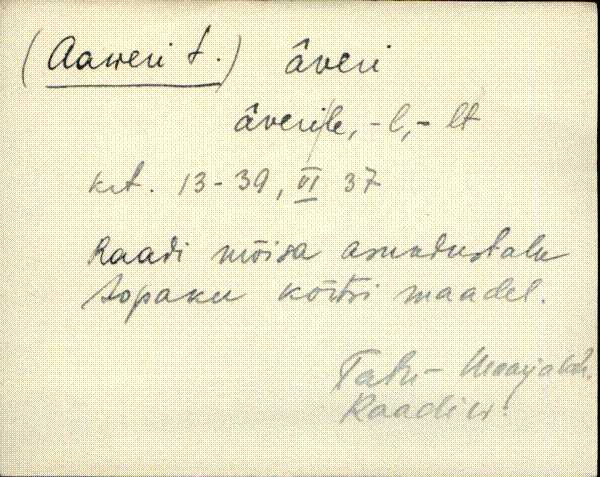 (Aaweri t.) âveri
âveri/le, -l, -lt
krt. 13-39, VI 37
Raadi mõisa asundustalu
Sopaku kõrtsi maadel.
Tartu-Maarja khk.
Raadi v.